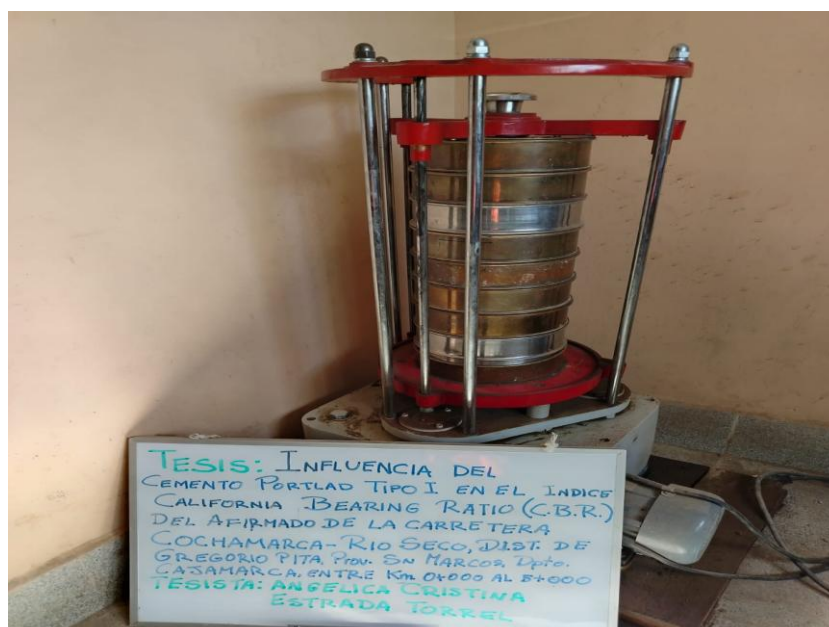 TESIS: INFLUENCIA DEL
CEMENTO PORTLAD TIPO I EN EL INDICE
CALIFORNIA BEARING RATIO (C.B.R.)
DEL AFIRMADO DE LA CARRETERA
COCHAMARCA - RIO SECO, DIST. DE
GREGORIO PITA, Prov. SN MARCOS, Dpto.
CAJAMARCA, ENTRE Km 0+000 AL 5+000
TESISTA: ANGELICA CRISTINA
ESTRADA TORREL